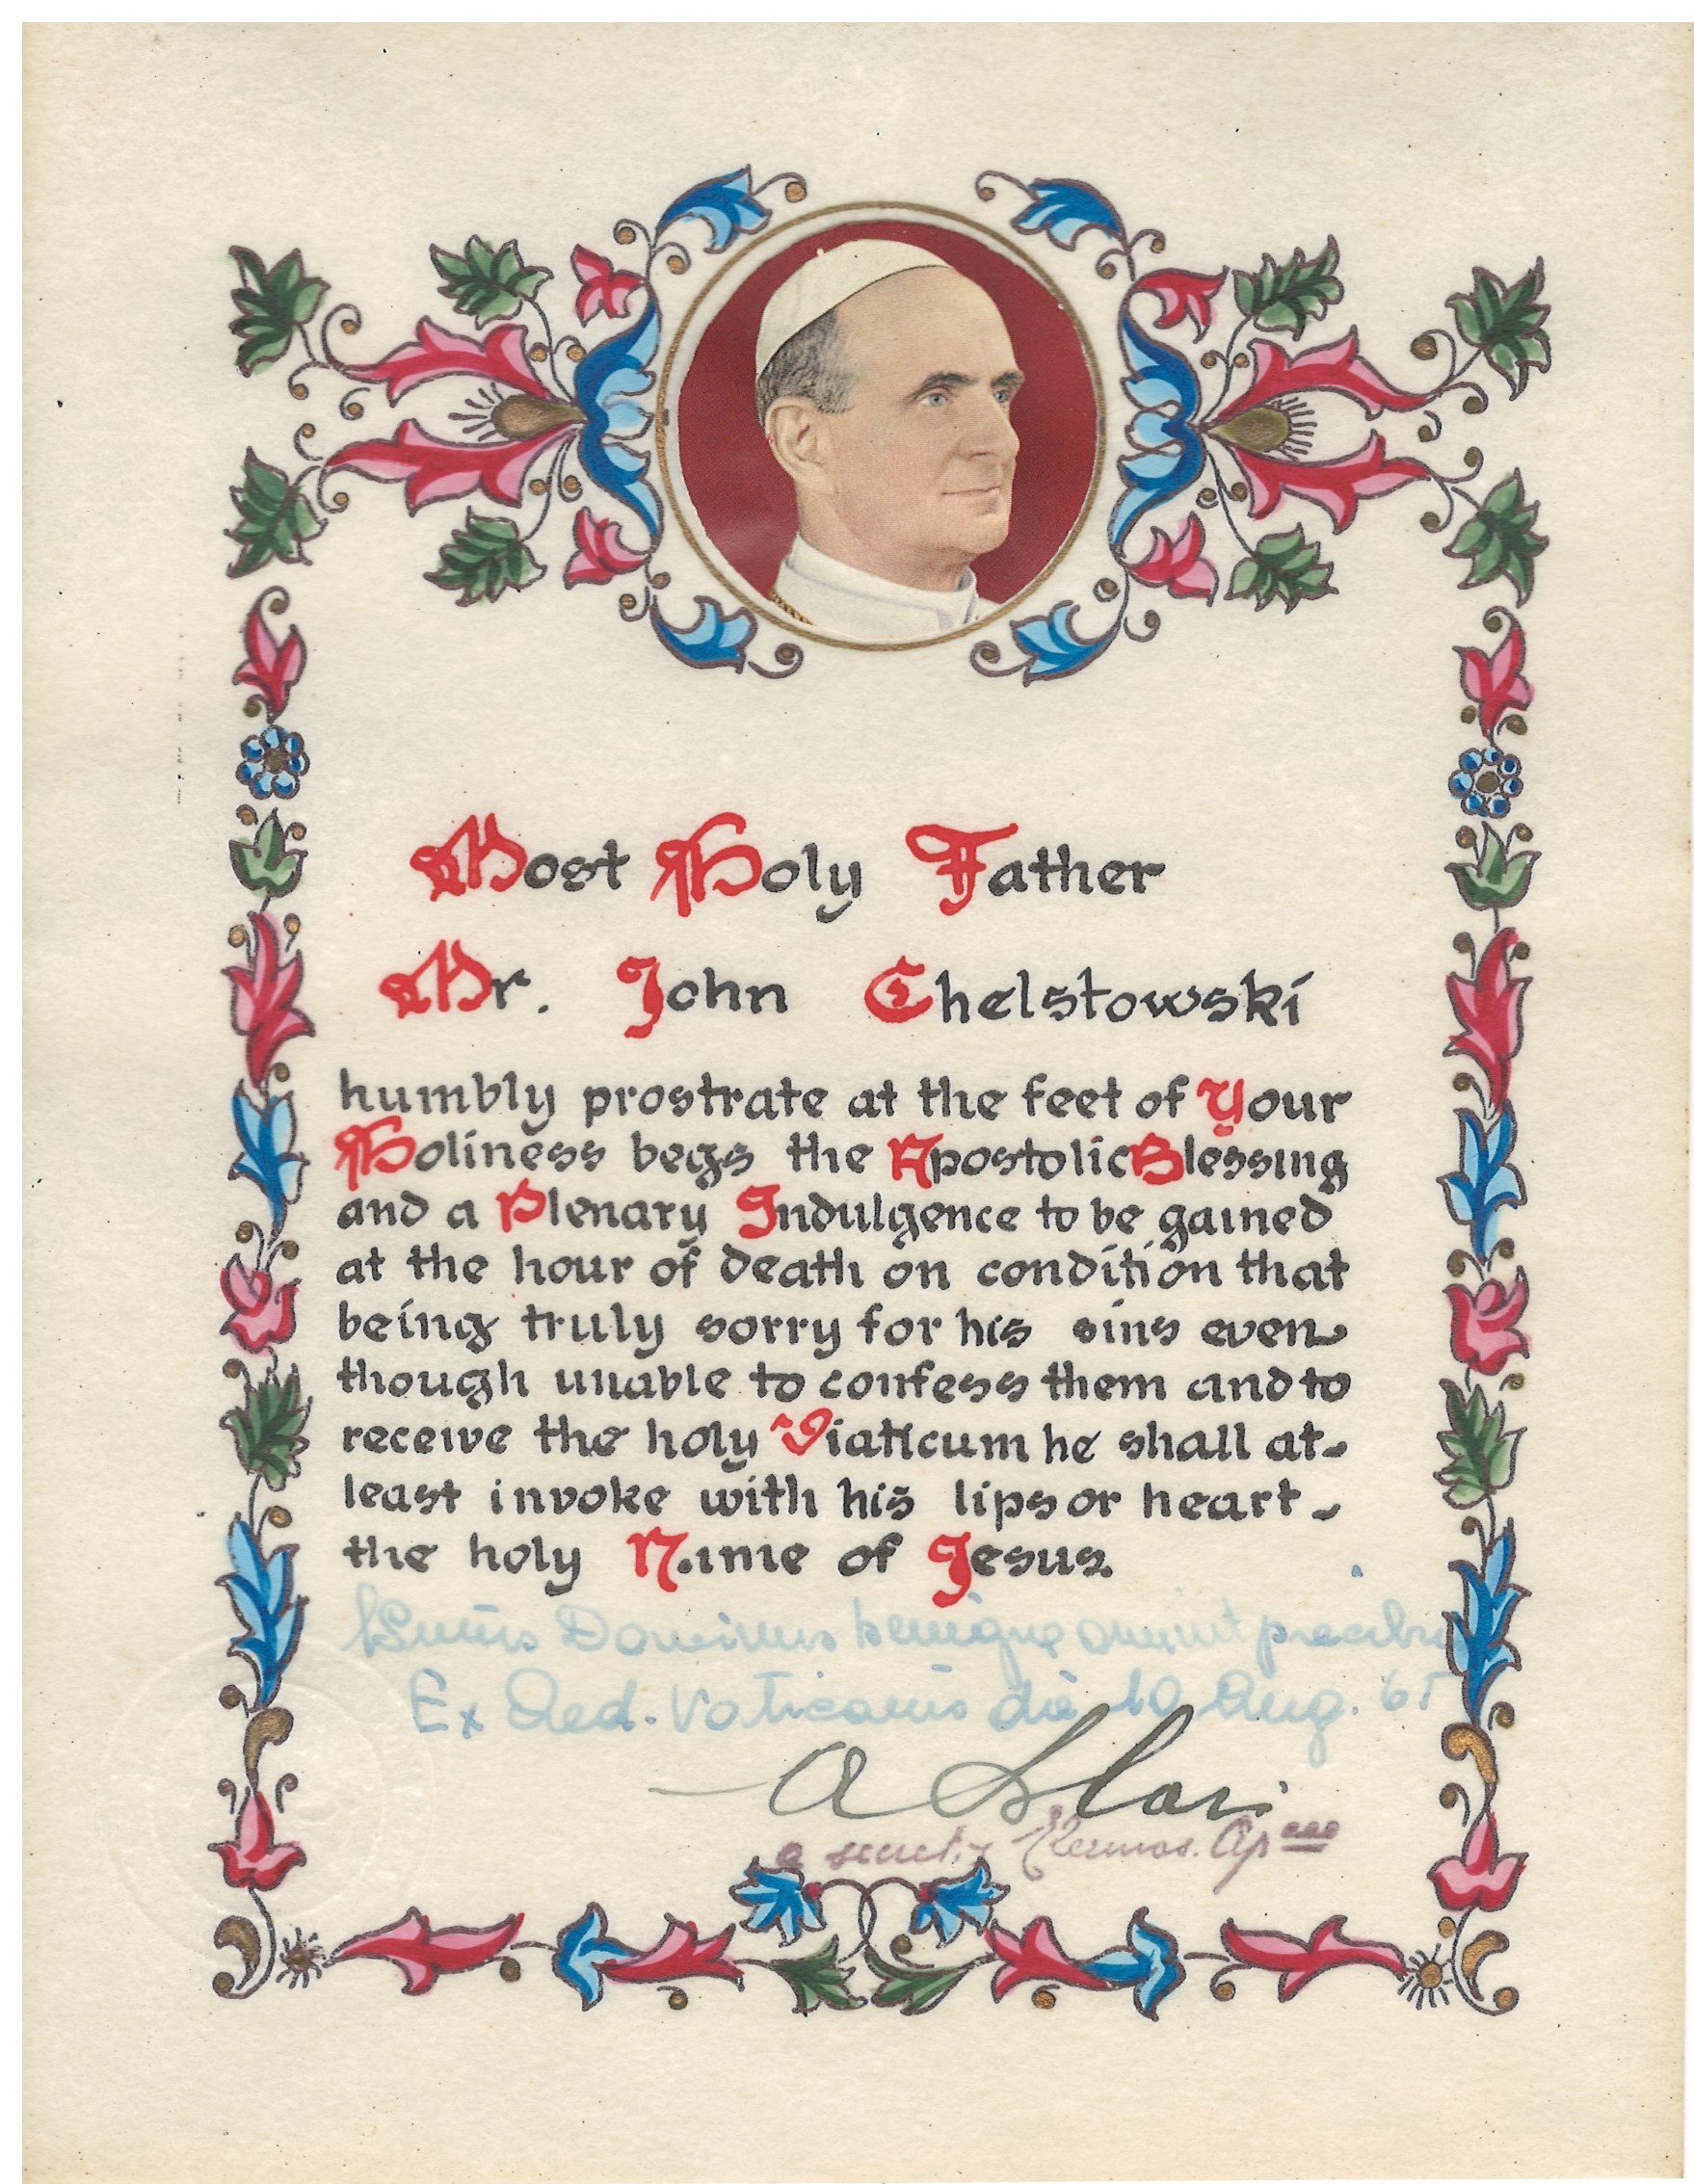 Most Holy Father
Mr. John Chelstowski
humbly prostrate at the feet of Your
Holiness begs the Apostolic Blessing
and a Plenary Indulgence to be gained
at the hour of death on condition that
being truly sorry for his sins even
though unable to confess them and to
receive the holy Viaticum he shall at-
least invoke with his lips or heart
the holy Name of Jesus.
Dominus benigne annuit precibus
Ex Aed. Vaticanis die 10 Aug. 65
a secretis Eleemos. Ap